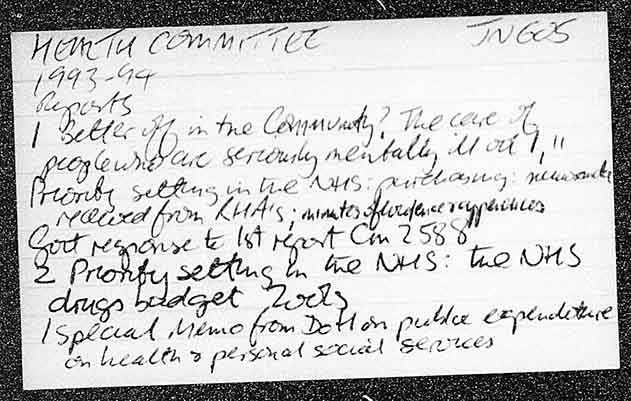 HEALTH COMMITTEE JN605
1993-94
Reports
1 Better off in the Community? The care of
people who are seriously mentally ill vol 1, 11
Priority setting in the NHS: purchasing: memoranda
received from RHA's; minutes of evidence & appendices
Govt response to 1st report Cm 2588
2 Priority setting in the NHS: the NHS
drugs budget 2vols
1 Special Memo from DoH on public expenditure
on health & personal social services